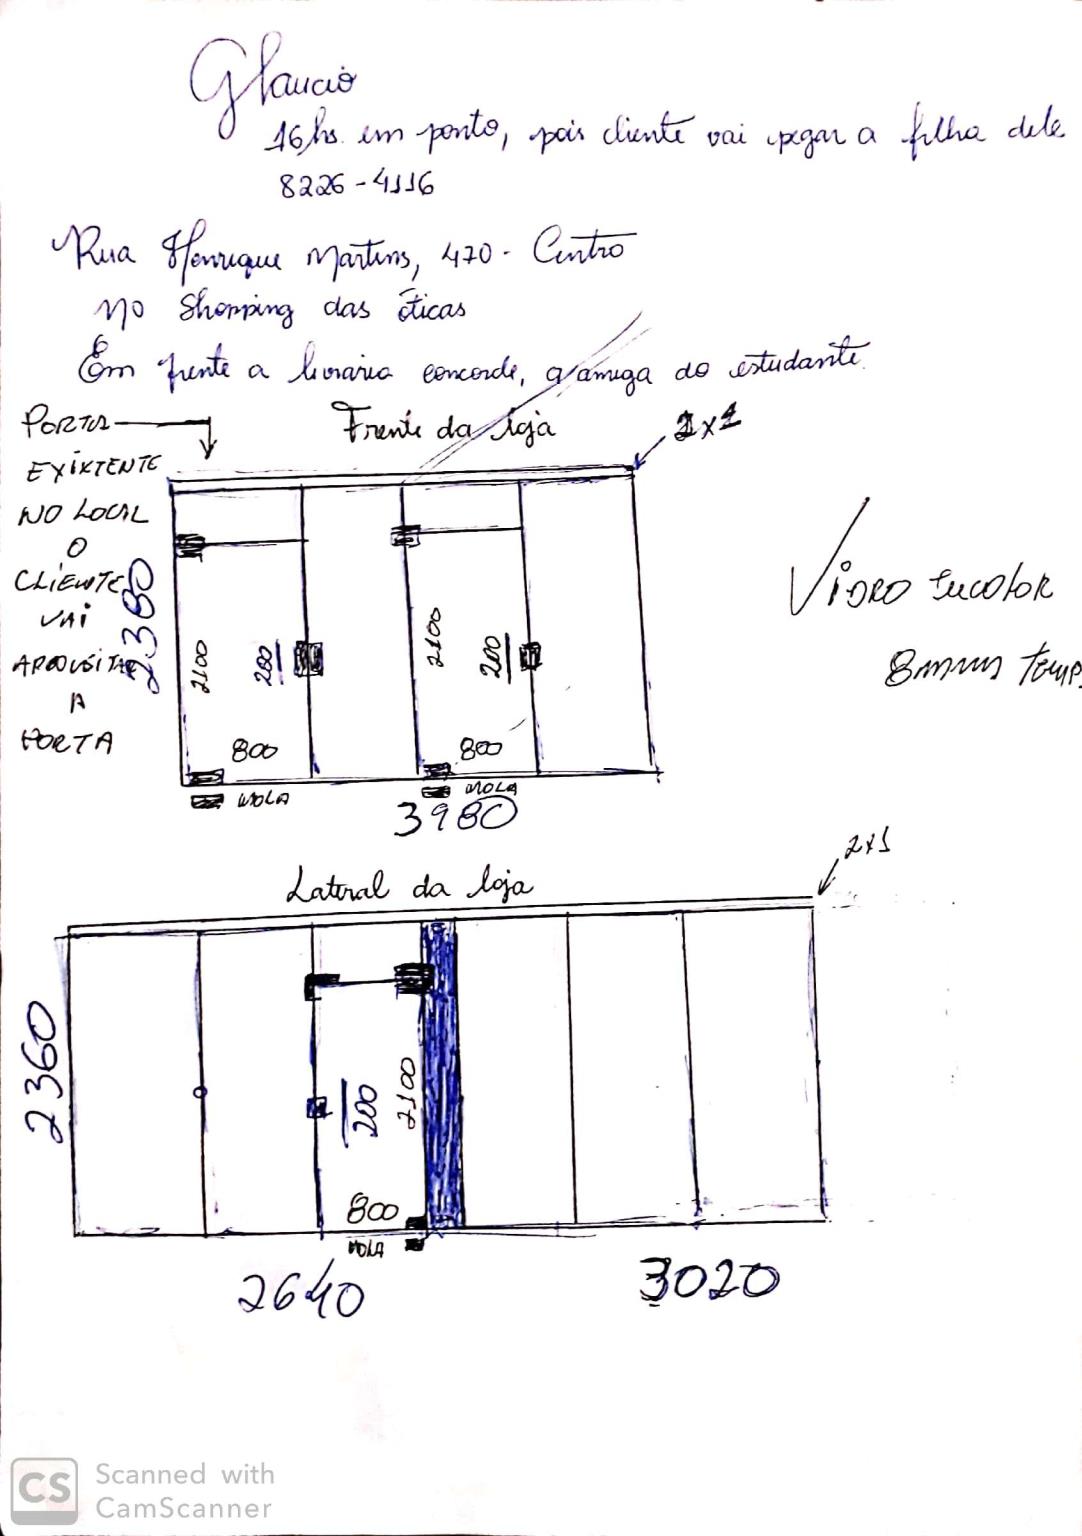 Glaucio
16hs. em ponto, pois cliente vai pegar a filha dele
8226-4116
Rua Henrique Martins, 470 - Centro
no Shopping das óticas
Em frente a livraria concorde, a amiga do estudante.
PORTA
EXISTENTE
NO LOCAL
O
CLIENTE
VAI
A
PORTA
Frente da loja
2x1
2380
2100
200
2100
200
800
800
MOLA
MOLA
3980
VIDRO incolor
8mm temp.
Lateral da loja
2x1
2360
200
2100
800
MOLA
2640
3020
CS
Scanned with
CamScanner